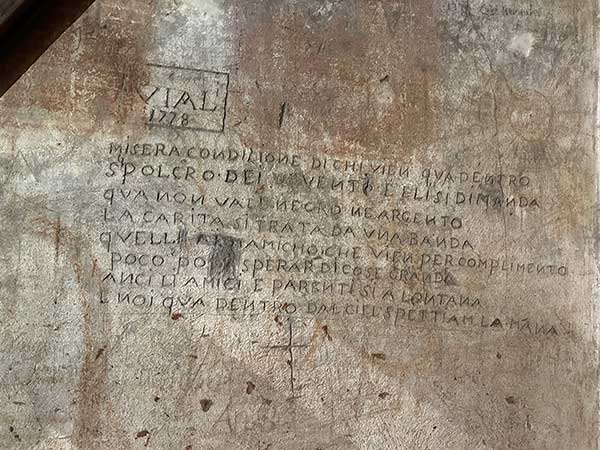 VIAL
1778
MISERA CONDIZIONE DI CHI VIEN QVA DENTRO
SPOLCRO DEI VENTO E LI SI DIMANDA
QVA NON VAL NE ORO NE ARGENTO
LA CARITA SI TRATA DA VNA BANDA
QVELL AMICHO CHE VIEN PER COMPLIMENTO
POCO POI SPERAR DI COSE GRANDI
ANCI LI AMICI E PARENTI SI A LONTANA
E NOI QVA DENTRO DAL CIEL SPETTIAM LA MANA